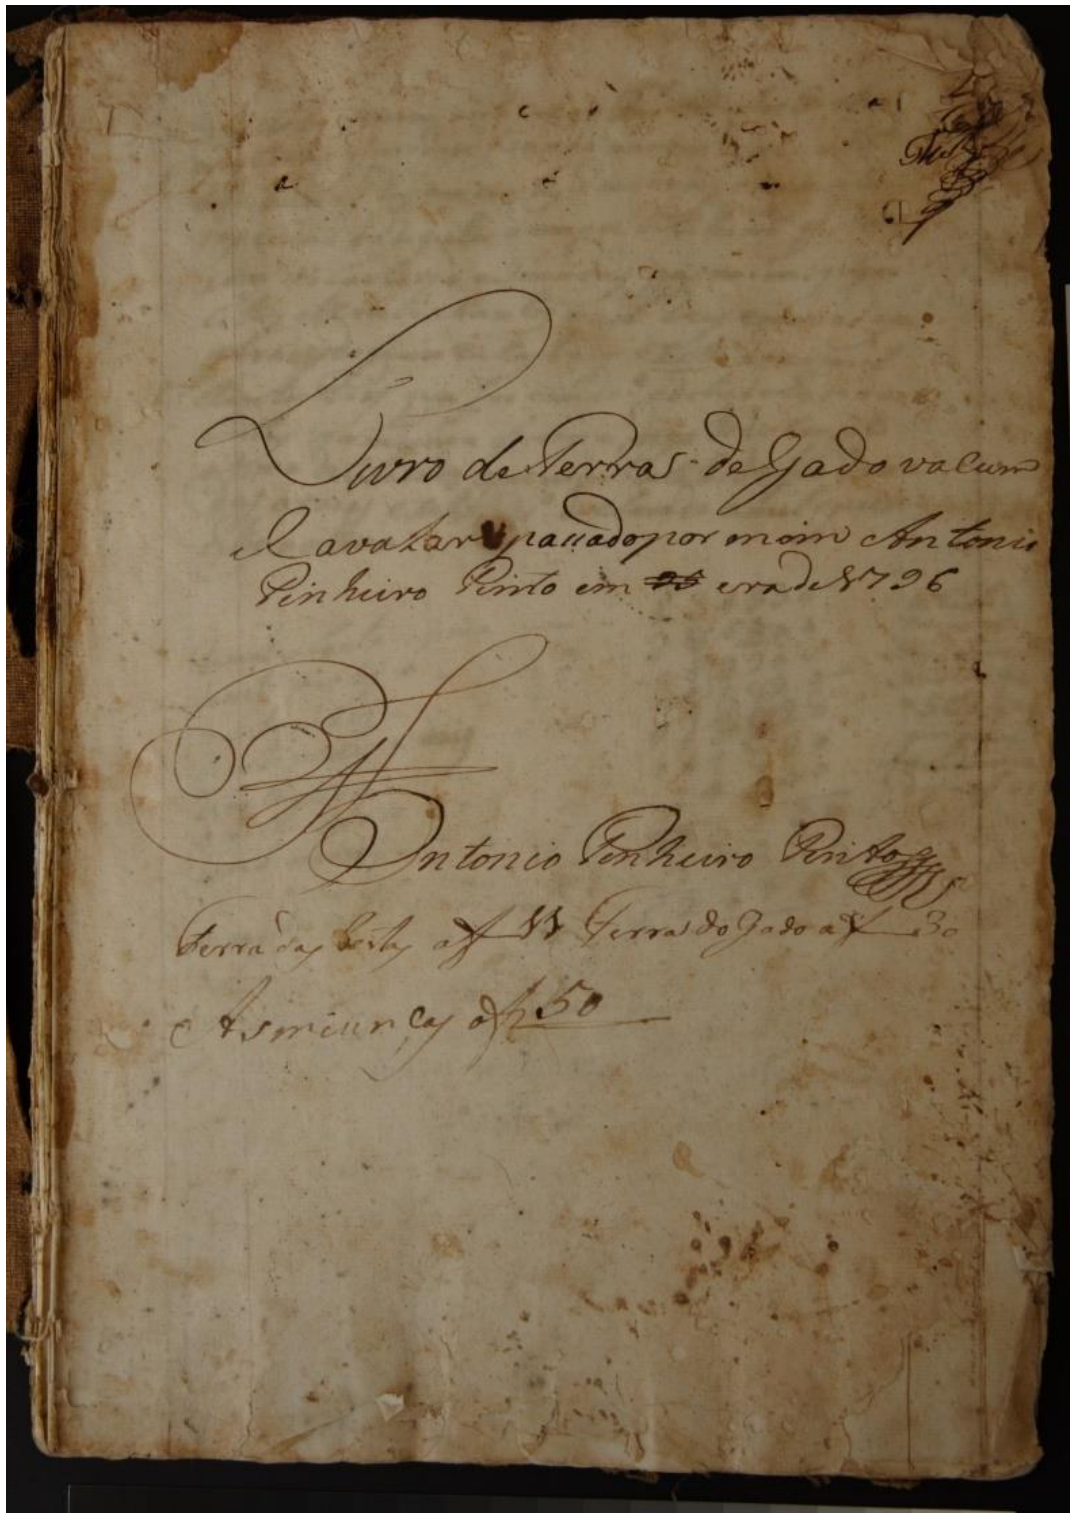 Livro de Ferras de Gado vacum
e Cavalar paçado por mim Antonio
Pinheiro Pinto em era de 1796
Antonio Pinheiro Pinto
Ferra das bestas af 11 Ferra do Gado af 30
As miunças af 50